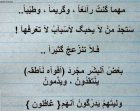 مهما كنت رائعاً ، وكريماً ، وطيباً..
ستجد من لا يحبك لأسباب لا تعرفها !
فلا تنزعج كثيراً ..
بعض البشر مجرد (أفواه ناطقه)
ينتقدون .. ويذمون
وليتهم يدركون أنهم { غافلون }